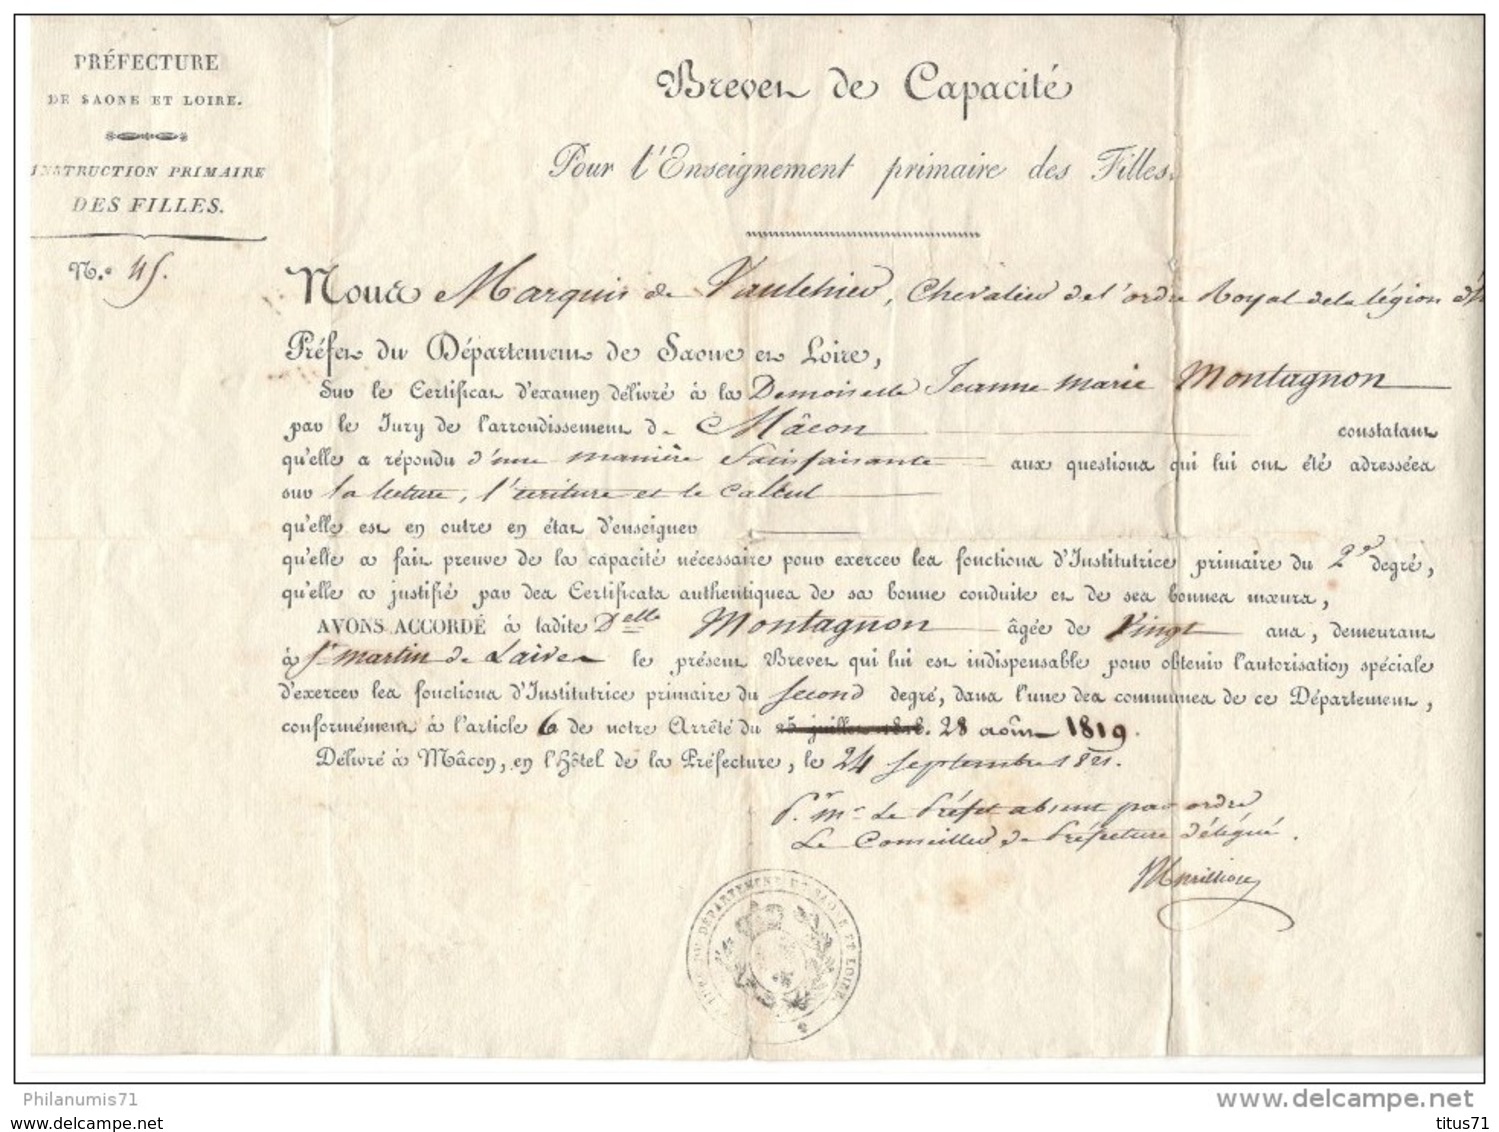 PRÉFECTURE
DE SAONE ET LOIRE.
INSTRUCTION PRIMAIRE
DES FILLES.
N.º 45.
Brevet de Capacité
Pour l'Enseignement primaire des Filles.
Nous Marquis de Vaulchier, Chevalier de l'ordre Royal de la légion d'h
Préfet du Département de Saone et Loire,
Sur le Certificat d'examen délivré à la Demoiselle Jeanne Marie Montagnon
par le Jury de l'arrondissement de Mâcon constatant
qu'elle a répondu d'une manière Satisfaisante aux questions qui lui ont été adressées
sur la lecture, l'écriture et le calcul
qu'elle est en outre en état d'enseigner
qu'elle a fait preuve de la capacité nécessaire pour exercer les fonctions d'Institutrice primaire du 2e degré,
qu'elle a justifié par des Certificats authentiques de sa bonne conduite et de ses bonnes mœurs,
AVONS ACCORDÉ à ladite Delle Montagnon âgée de Vingt ans, demeurant
à St martin de Laives le présent Brevet qui lui est indispensable pour obtenir l'autorisation spéciale
d'exercer les fonctions d'Institutrice primaire du second degré, dans l'une des communes de ce Département,
conformément à l'article 6 de notre Arrêté du 25 juillet 1818. 28 août 1819.
Délivré à Mâcon, en l'Hôtel de la Préfecture, le 24 septembre 1821.
Pr. mr. Le Préfet absent par ordre
Le Conseiller de Préfecture délégué.
DU DÉPARTEMENT DE SAONE ET LOIRE
Philanumis71
www.delcampe.net
www.delcampe.net
titus71